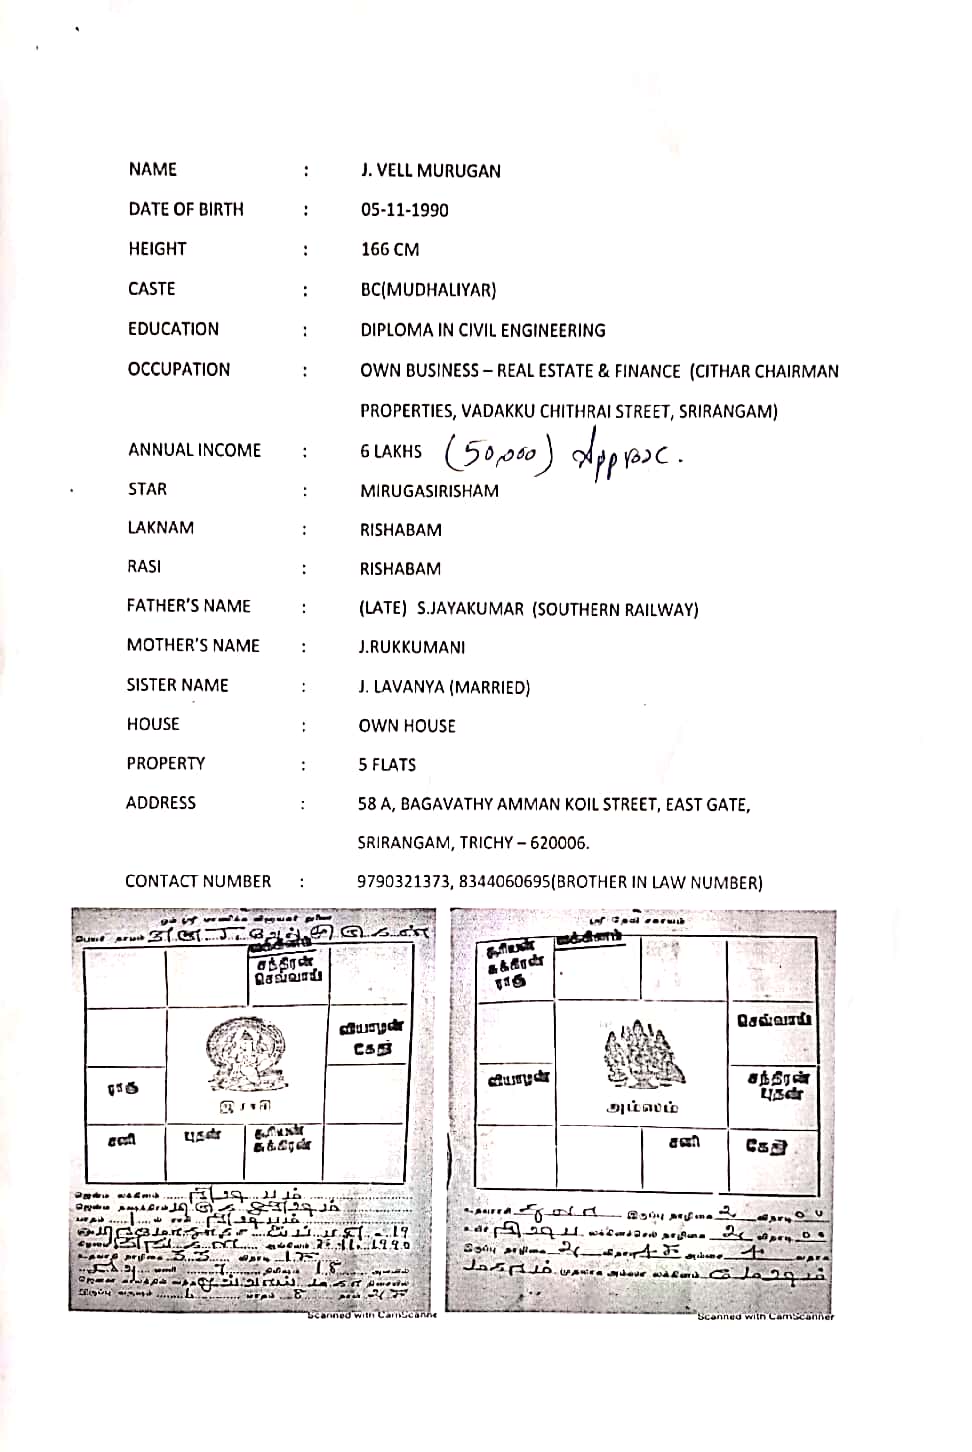 NAME : J. VELL MURUGAN
DATE OF BIRTH : 05-11-1990
HEIGHT : 166 CM
CASTE : BC(MUDHALIYAR)
EDUCATION : DIPLOMA IN CIVIL ENGINEERING
OCCUPATION : OWN BUSINESS – REAL ESTATE & FINANCE (CITHAR CHAIRMAN
PROPERTIES, VADAKKU CHITHRAI STREET, SRIRANGAM)
ANNUAL INCOME : 6 LAKHS (50,000) Approx.
STAR : MIRUGASIRISHAM
LAKNAM : RISHABAM
RASI : RISHABAM
FATHER'S NAME : (LATE) S.JAYAKUMAR (SOUTHERN RAILWAY)
MOTHER'S NAME : J.RUKKUMANI
SISTER NAME : J. LAVANYA (MARRIED)
HOUSE : OWN HOUSE
PROPERTY : 5 FLATS
ADDRESS : 58 A, BAGAVATHY AMMAN KOIL STREET, EAST GATE,
SRIRANGAM, TRICHY – 620006.
CONTACT NUMBER : 9790321373, 8344060695(BROTHER IN LAW NUMBER)
லக்கினம்
சந்திரன்
செவ்வாய்
வியாழன்
கேது
ராகு
இராசி
சனி
புதன்
சூரியன்
சுக்கிரன்
ஜென்ம லக்கினம்
Scanned with CamScanner
சூரியன்
சுக்கிரன்
ராகு
லக்கினம்
செவ்வாய்
வியாழன்
சந்திரன்
புதன்
அம்சம்
சனி
கேது
Scanned with CamScanner